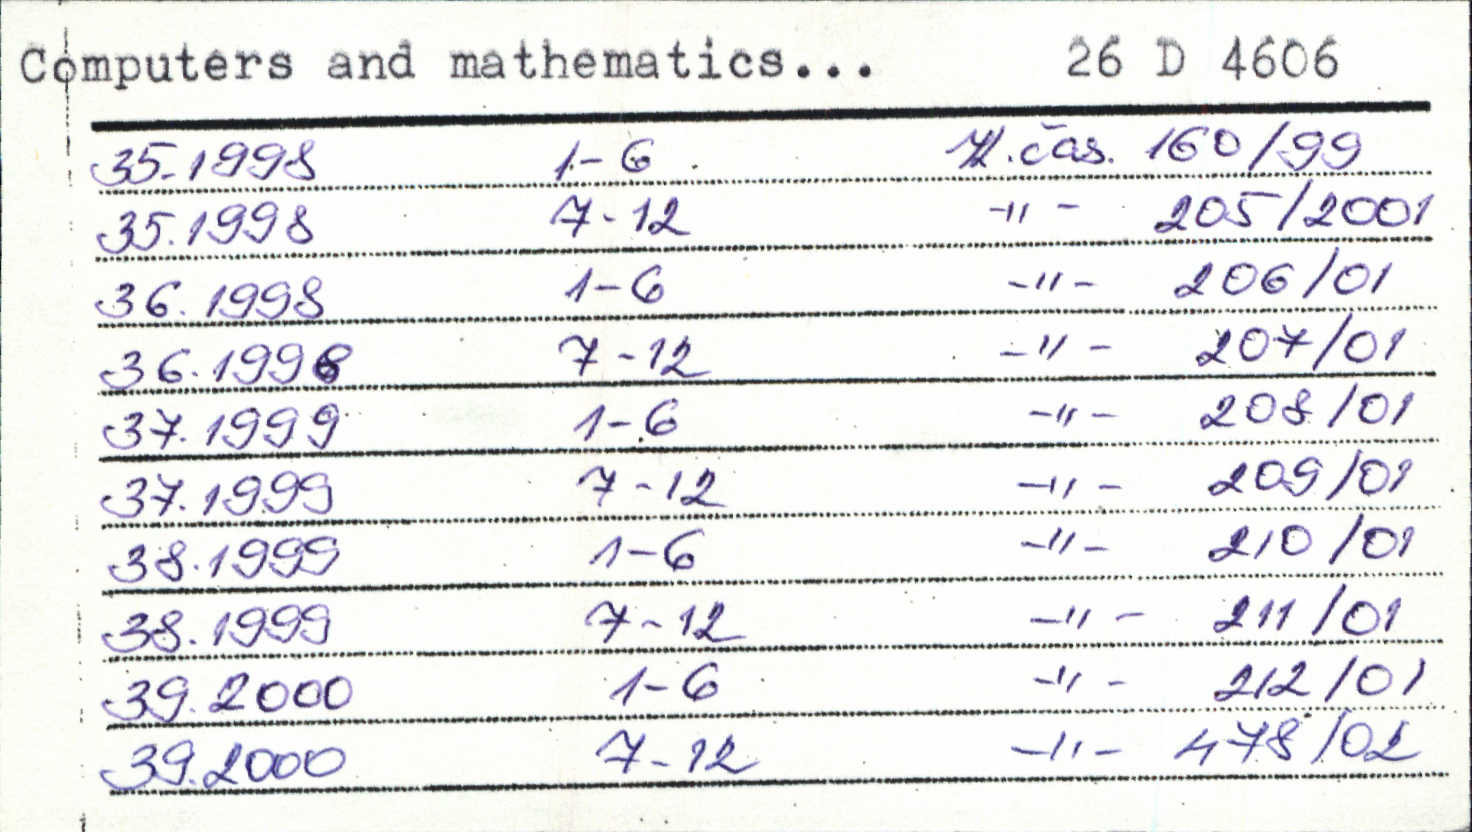 Computers and mathematics... 26 D 4606
35.1998 1-6 čas. 160/99
35.1998 7-12 -"- 205/2001
36.1998 1-6 -"- 206/01
36.1998 7-12 -"- 207/01
37.1999 1-6 -"- 208/01
37.1999 7-12 -"- 209/01
38.1999 1-6 -"- 210/01
38.1999 7-12 -"- 211/01
39.2000 1-6 -"- 212/01
39.2000 7-12 -"- 478/02